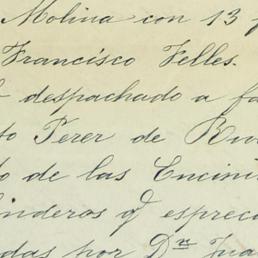 Molina con 13
Francisco Felles.
despachado a fa
to Perer de Ru
o de las Encini
nderos q espreca
das por Dn Jua